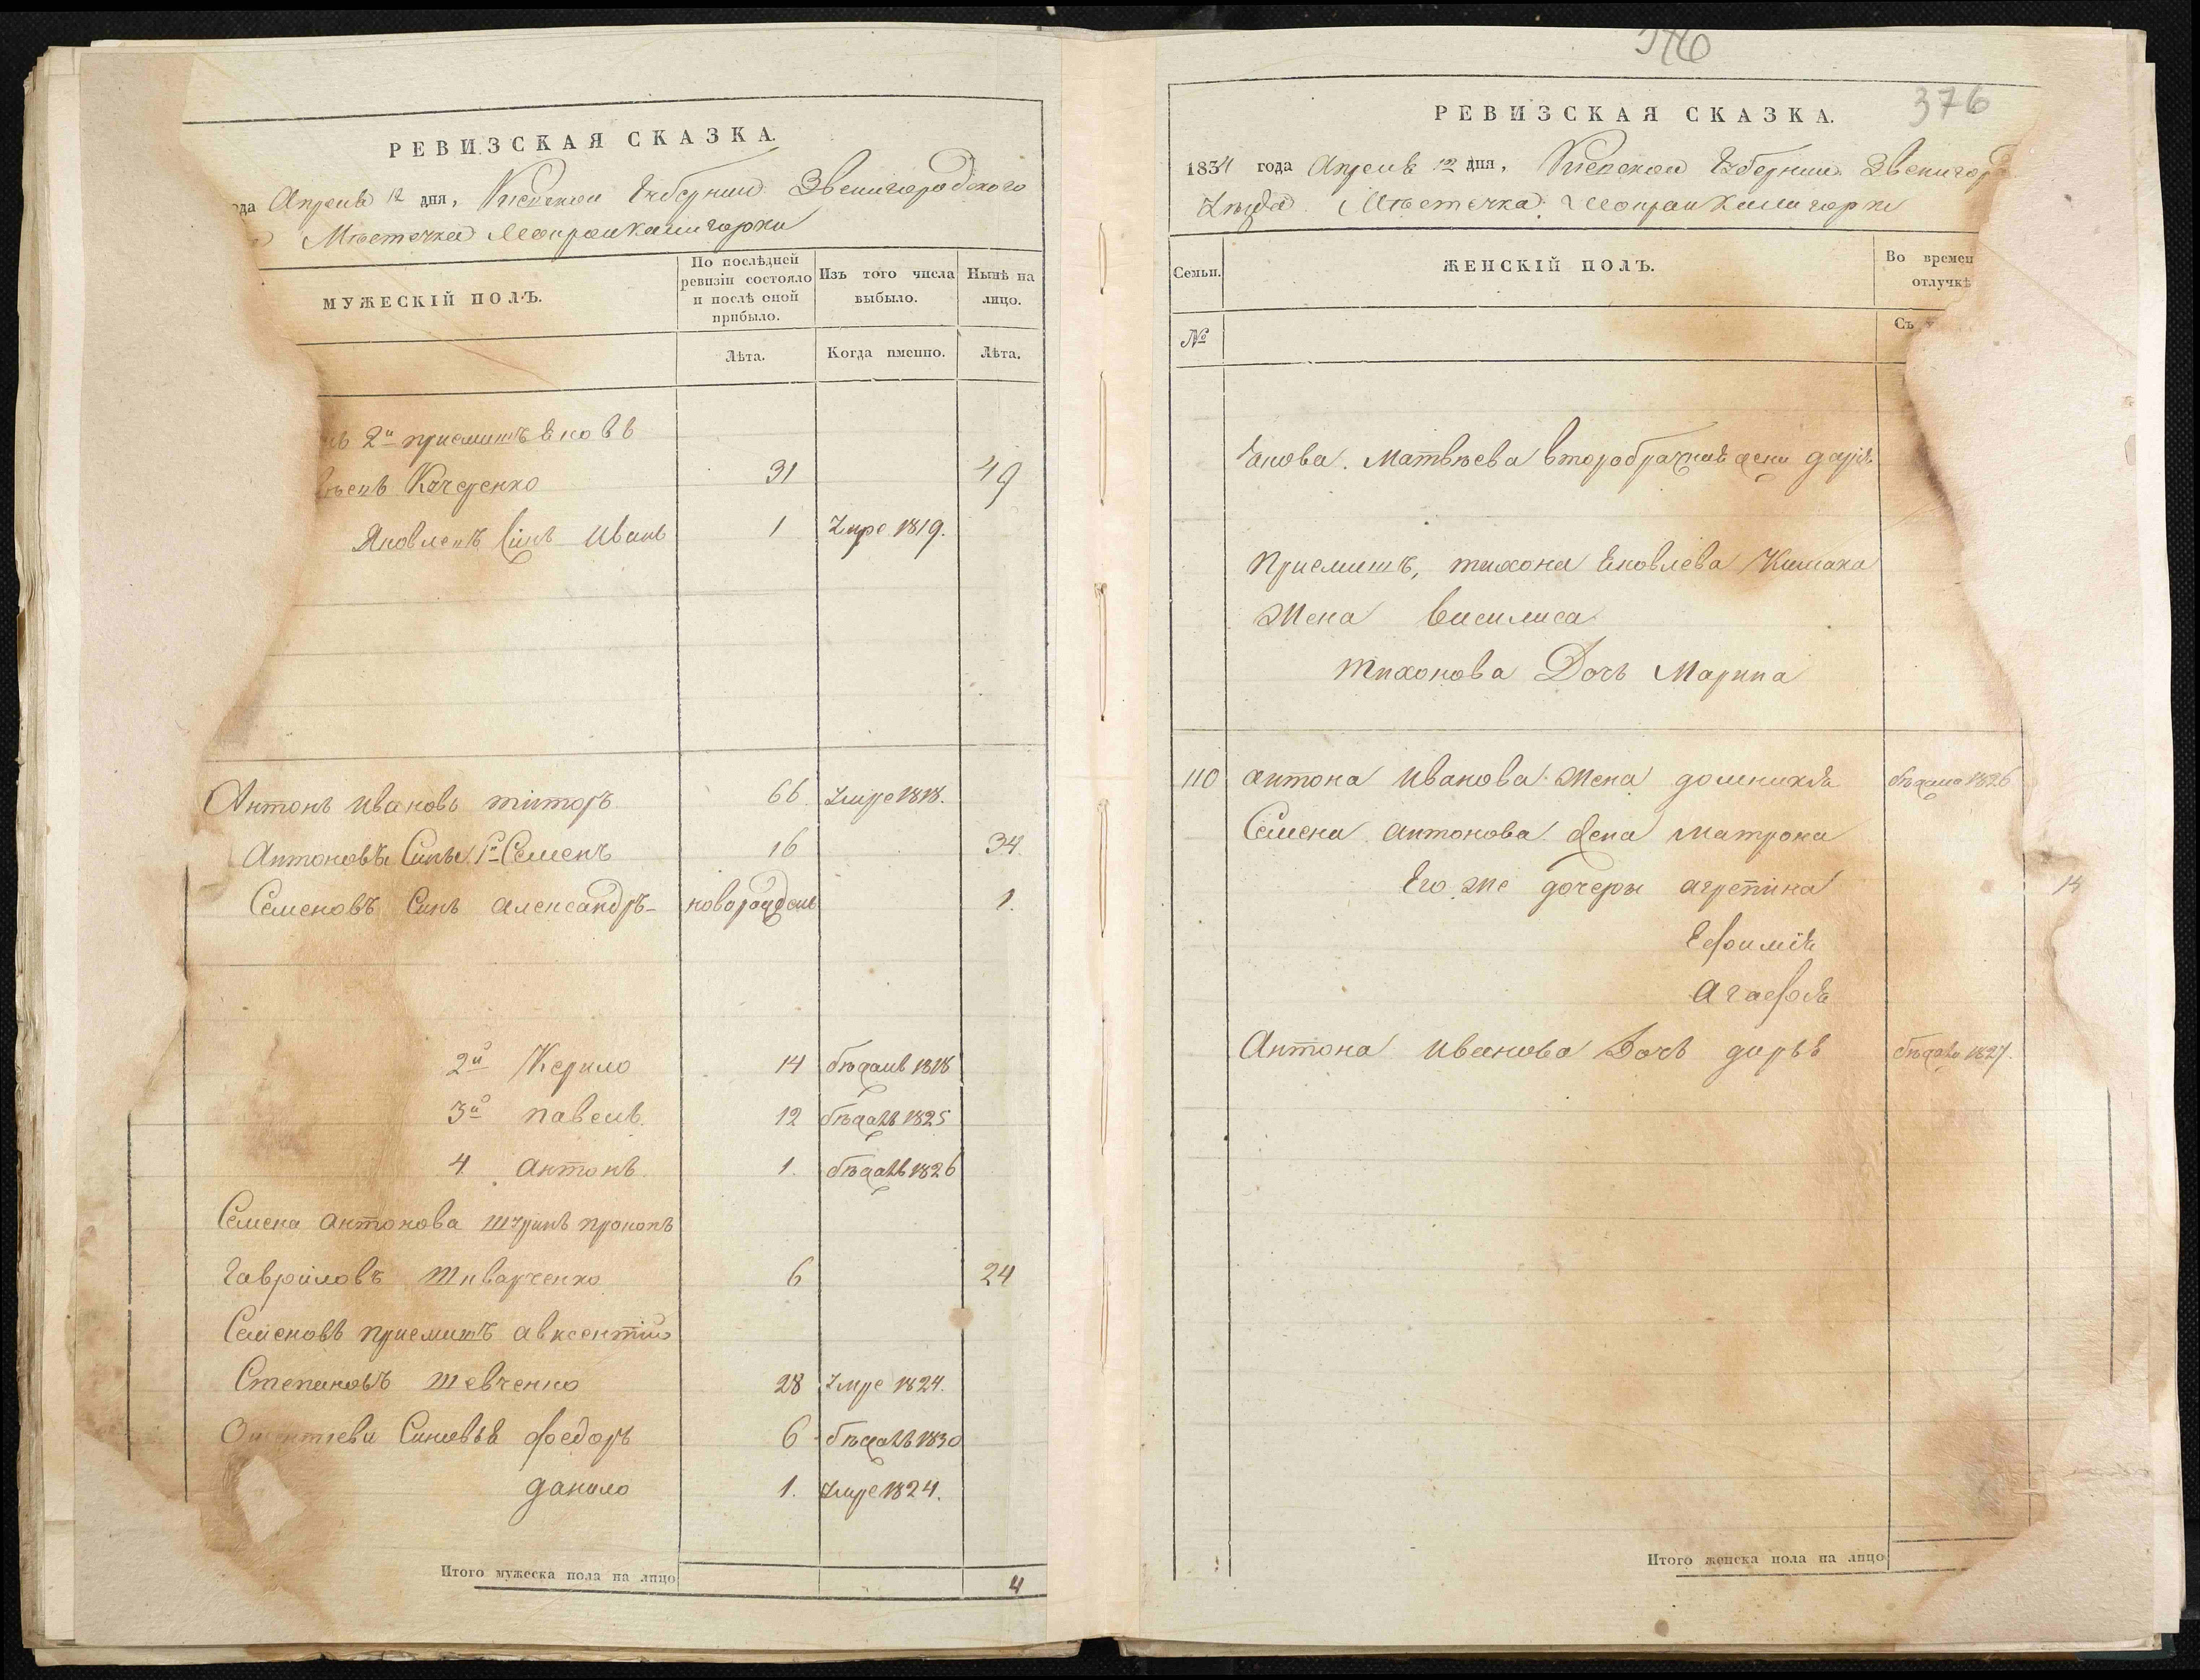 РЕВИЗСКАЯ СКАЗКА.
Апреля 12 дня, Киевской Губернии Звенигородского
Местечка Мокрой Калигорки
МУЖЕСКІЙ ПОЛЪ.
По послѣдней ревизіи состояло и послѣ оной прибыло.
Изъ того числа выбыло.
Нынѣ на лицо.
Лѣта.
Когда именно.
Лѣта.
2й приемишъ Яковъ
Кочеренко 31 49
Яковлевъ Синъ Иванъ 1 Умре 1819.
Антонъ Ивановъ титоръ 66 Умре 1818.
Антоновы Сины 1й Семенъ 16 34
Семеновъ Синъ Александръ новорожденъ 1.
2й Керило 14 бѣжалъ 1818
3й павелъ 12 бѣжалъ 1825
4 антонъ 1. бѣжалъ 1826
Семена антонова шуринъ прокопъ
Гавриловъ 6 24
Семеновъ приемишъ авксентій
Степановъ шевченко 28 Умре 1824.
Синовья федоръ 6 бѣжалъ 1830
данило 1. Умре 1824.
Итого мужеска пола на лицо 4
376
РЕВИЗСКАЯ СКАЗКА.
376
1834 года Апреля 12 дня, Киевской Губернии Звенигор
Уѣзда Местечка Мокрой Калигорки
Семьи.
ЖЕНСКІЙ ПОЛЪ.
Во времен
отлучкѣ
№
Съ
Якова Матвѣева второбрачная жена дарія
Приемишъ, тихона Яковлева
Жена василиса
тихонова Дочь Марина
110 антона Иванова жена домникія бѣжала 1826
Семена антонова жена матрона
Его же дочери агрепина
Ефимія
Агафія
Антона Иванова Дочь даръя бѣжала 1827.
Итого женска пола на лицо